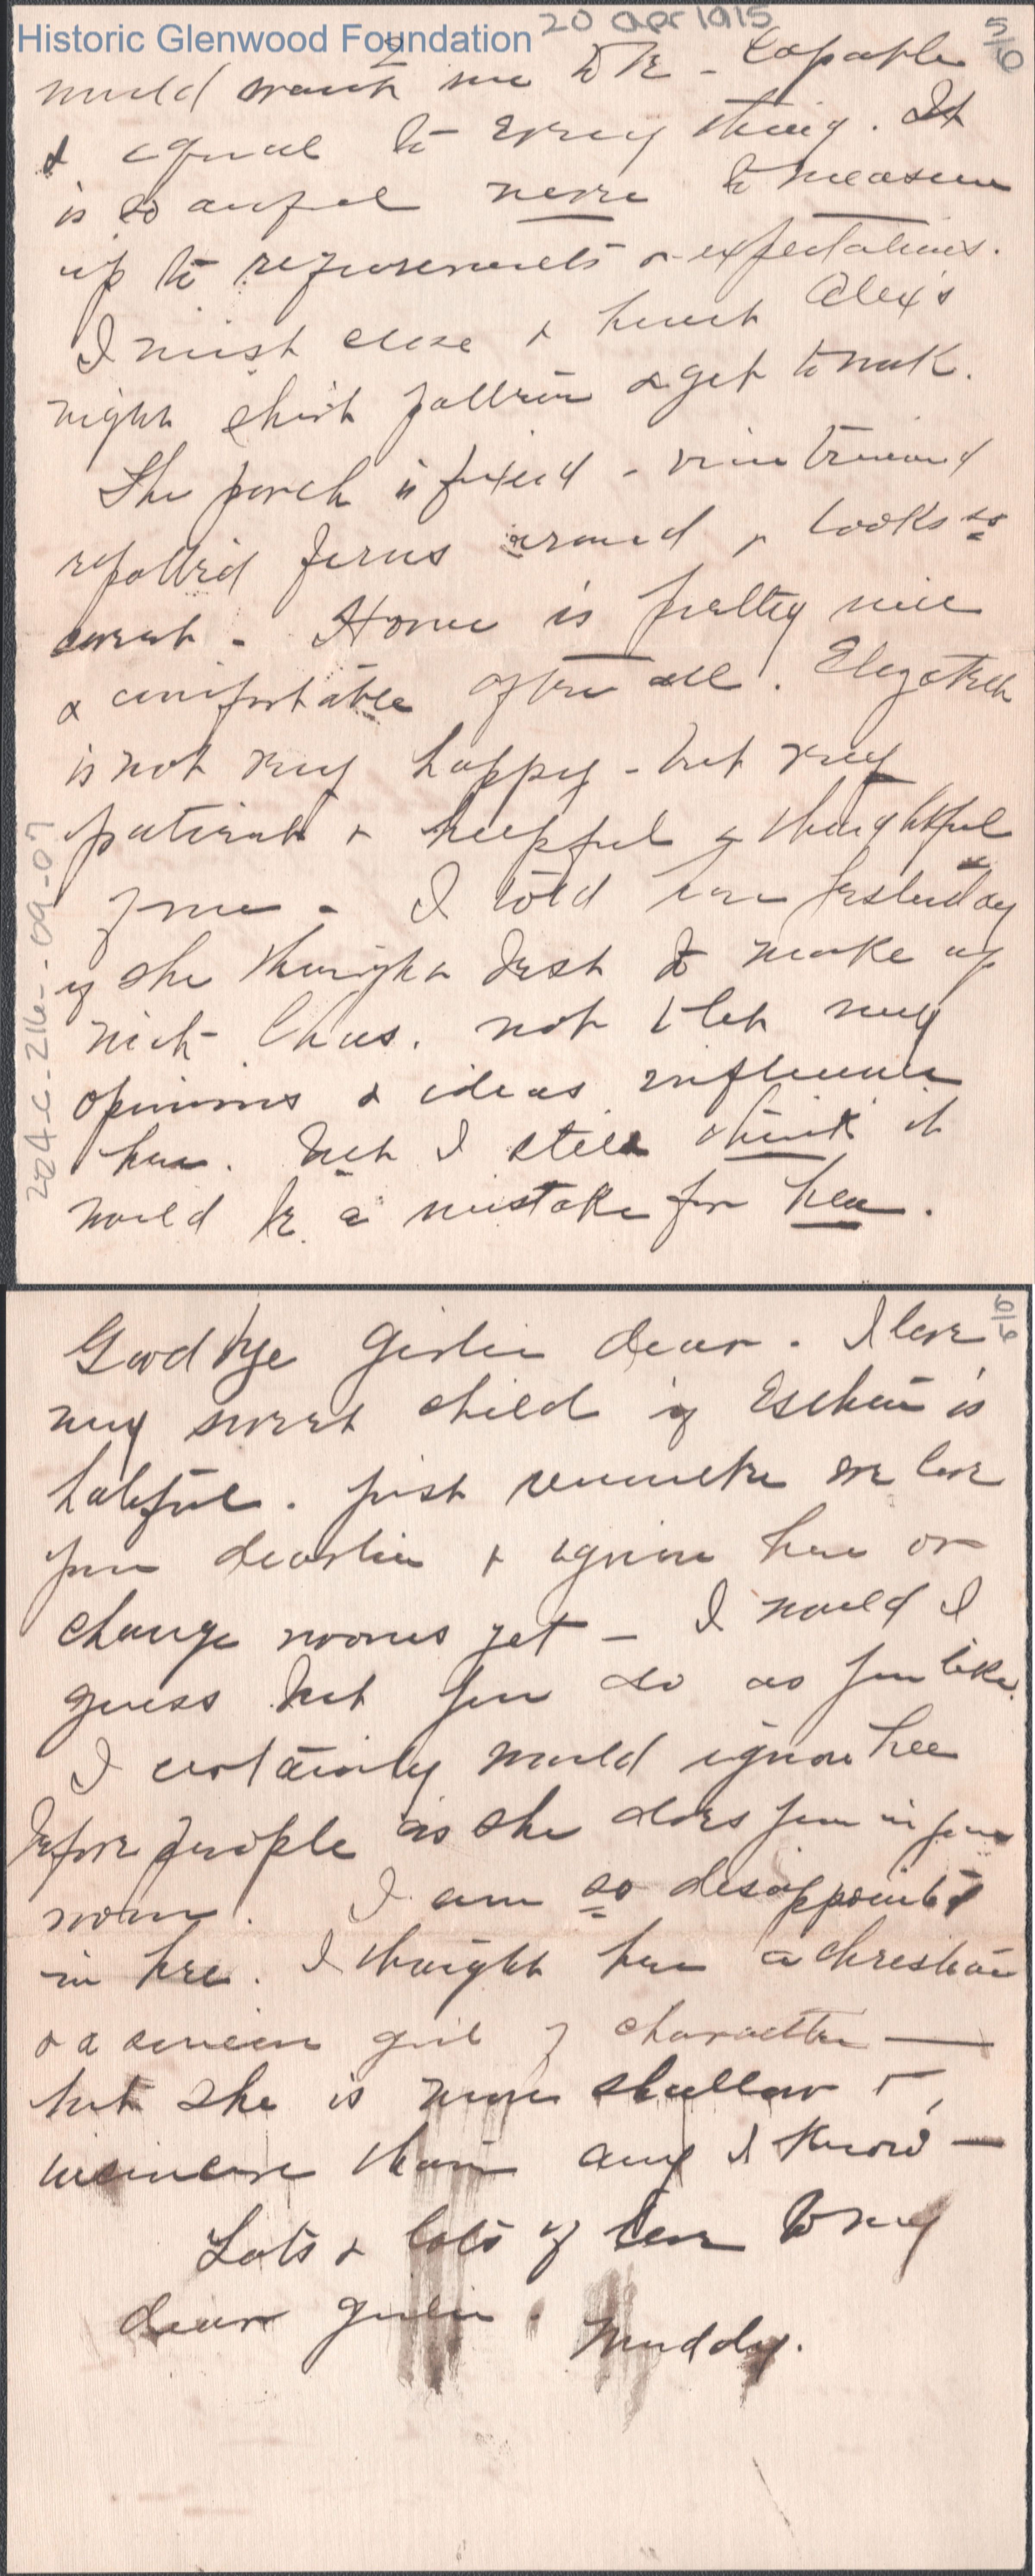 20 Apr 1915
5/6
Historic Glenwood Foundation
2
would want me to be - Capable
& equal to every thing. It
is so awful never to measure
up to requirements or expectations.
I must close & hunt Alex's
night shirt pattern & get to work.
The porch is fixed - vine trimmed
repotted ferns around & looks so
sweet - Home is pretty nice
& comfortable after all. Elizabeth
is not very happy - but very
patient & helpful & thoughtful
of me - I told her yesterday
if she thought best to make up
with Chas. not to let my
opinions & ideas influence
her. But I still think it
would be a mistake for her.
204-C-216-09-07
6/6
Goodbye Girlie dear. I love
my sweet child if is
hateful. just remember we love
you dearlie & ignore her or
change rooms yet - I would I
guess but you do as you like.
I certainly would ignore her
before people as she does you in your
room. I am so disappointed
in her. I thought her a christian
& a sincere girl of character —
but she is more shallow &
insincere than any I know —
Lots & lots of love to my
dear girlie. Muddy.